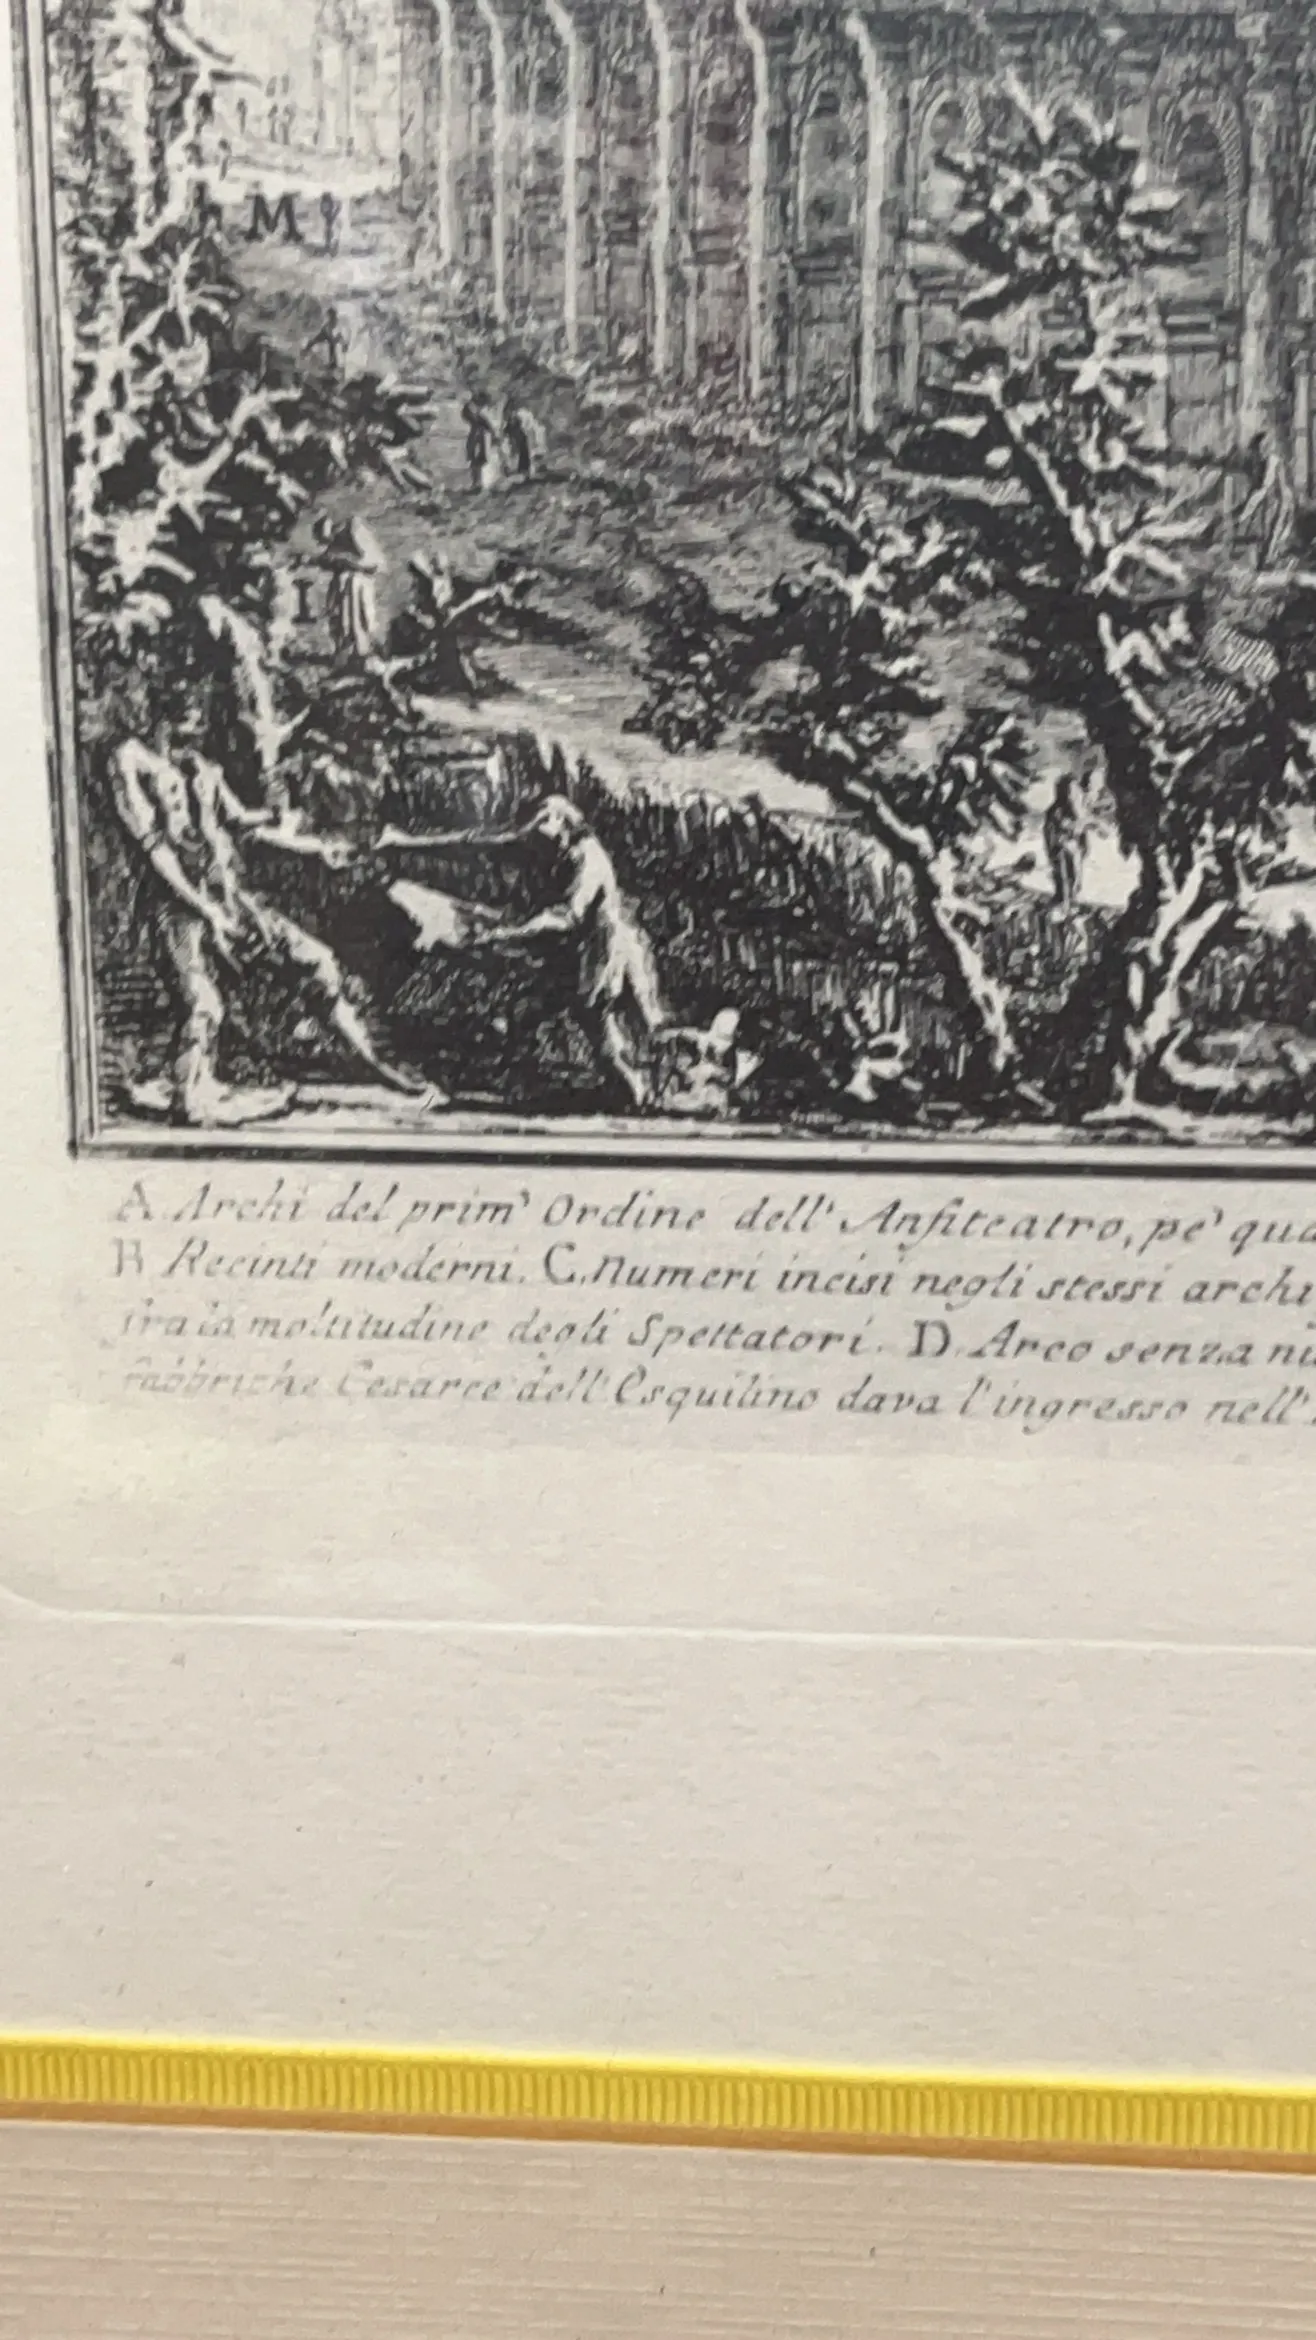 M
I
A. Archi del prim' Ordine dell' Anfiteatro, pe' qua
B Recinti moderni. C. Numeri incisi negli stessi archi
tra la moltitudine degli Spettatori. D. Arco senza nu
fabbriche Cesaree dell' Esquilino dava l'ingresso nell'